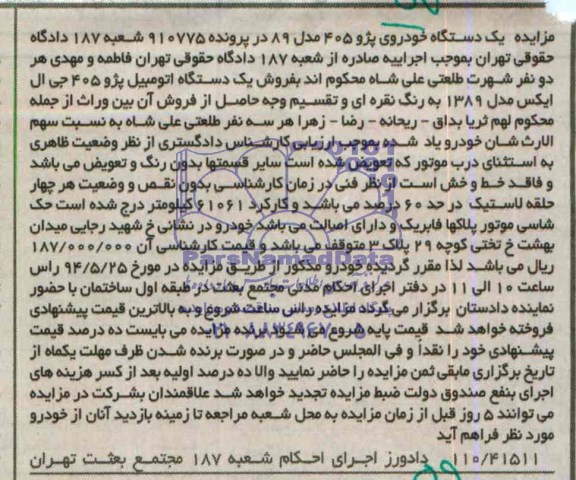 مزایده یک دستگاه خودروی پژو ۴۰۵ مدل ۸۹ در پرونده ۹۱۰۷۷۵ شعبه ۱۸۷ دادگاه
حقوقی تهران بموجب اجراییه صادره از شعبه ۱۸۷ دادگاه حقوقی تهران فاطمه و مهدی هر
دو نفر شهرت طلعتی علی شاه محکوم اند بفروش یک دستگاه اتومبیل پژو ۴۰۵ جی ال
ایکس مدل ۱۳۸۹ به رنگ نقره ای و تقسیم وجه حاصل از فروش آن بین وراث از جمله
محکوم لهم ثریا بداق - ریحانه - رضا - زهرا هر سه نفر طلعتی علی شاه به نسبت سهم
الارث شان خودرو یاد شده بموجب ارزیابی کارشناس دادگستری از نظر وضعیت ظاهری
به استثنای درب موتور که تعویض شده است سایر قسمتها بدون رنگ و تعویض می باشد
و فاقد خط و خش است از نظر فنی در زمان کارشناسی بدون نقص و وضعیت هر چهار
حلقه لاستیک در حد ۶۰ درصد می باشد و کارکرد ۶۱۰۶۱ کیلومتر درج شده است حک
شاسی موتور پلاکها فابریک و دارای اصالت می باشد خودرو در نشانی خ شهید رجایی میدان
بهشت خ تختی کوچه ۲۹ پلاک ۳ متوقف می باشد و قیمت کارشناسی آن ۱۸۷/۰۰۰/۰۰۰
ParsNamadData
ریال می باشد لذا مقرر گردیده خودرو مذکور از طریق مزایده در مورخ ۹۴/۵/۲۵ راس
ساعت ۱۰ الی ۱۱ در دفتر اجرای احکام مدنی مجتمع بعثت در طبقه اول ساختمان با حضور
نماینده دادستان برگزار می گردد مزایده راس ساعت شروع و به بالاترین قیمت پیشنهادی
فروخته خواهد شد قیمت پایه شروع می شود برنده مزایده می بایست ده درصد قیمت
پیشنهادی خود را نقدا و فی المجلس حاضر و در صورت برنده شدن ظرف مهلت یکماه از
تاریخ برگزاری مابقی ثمن مزایده را حاضر نمایید والا ده درصد اولیه بعد از کسر هزینه های
اجرای بنفع صندوق دولت ضبط مزایده تجدید خواهد شد علاقمندان بشرکت در مزایده
می توانند ۵ روز قبل از زمان مزایده به محل شعبه مراجعه تا زمینه بازدید آنان از خودرو
مورد نظر فراهم آید
۱۱۰/۴۱۵۱۱ دادورز اجرای احکام شعبه ۱۸۷ مجتمع بعثت تهران